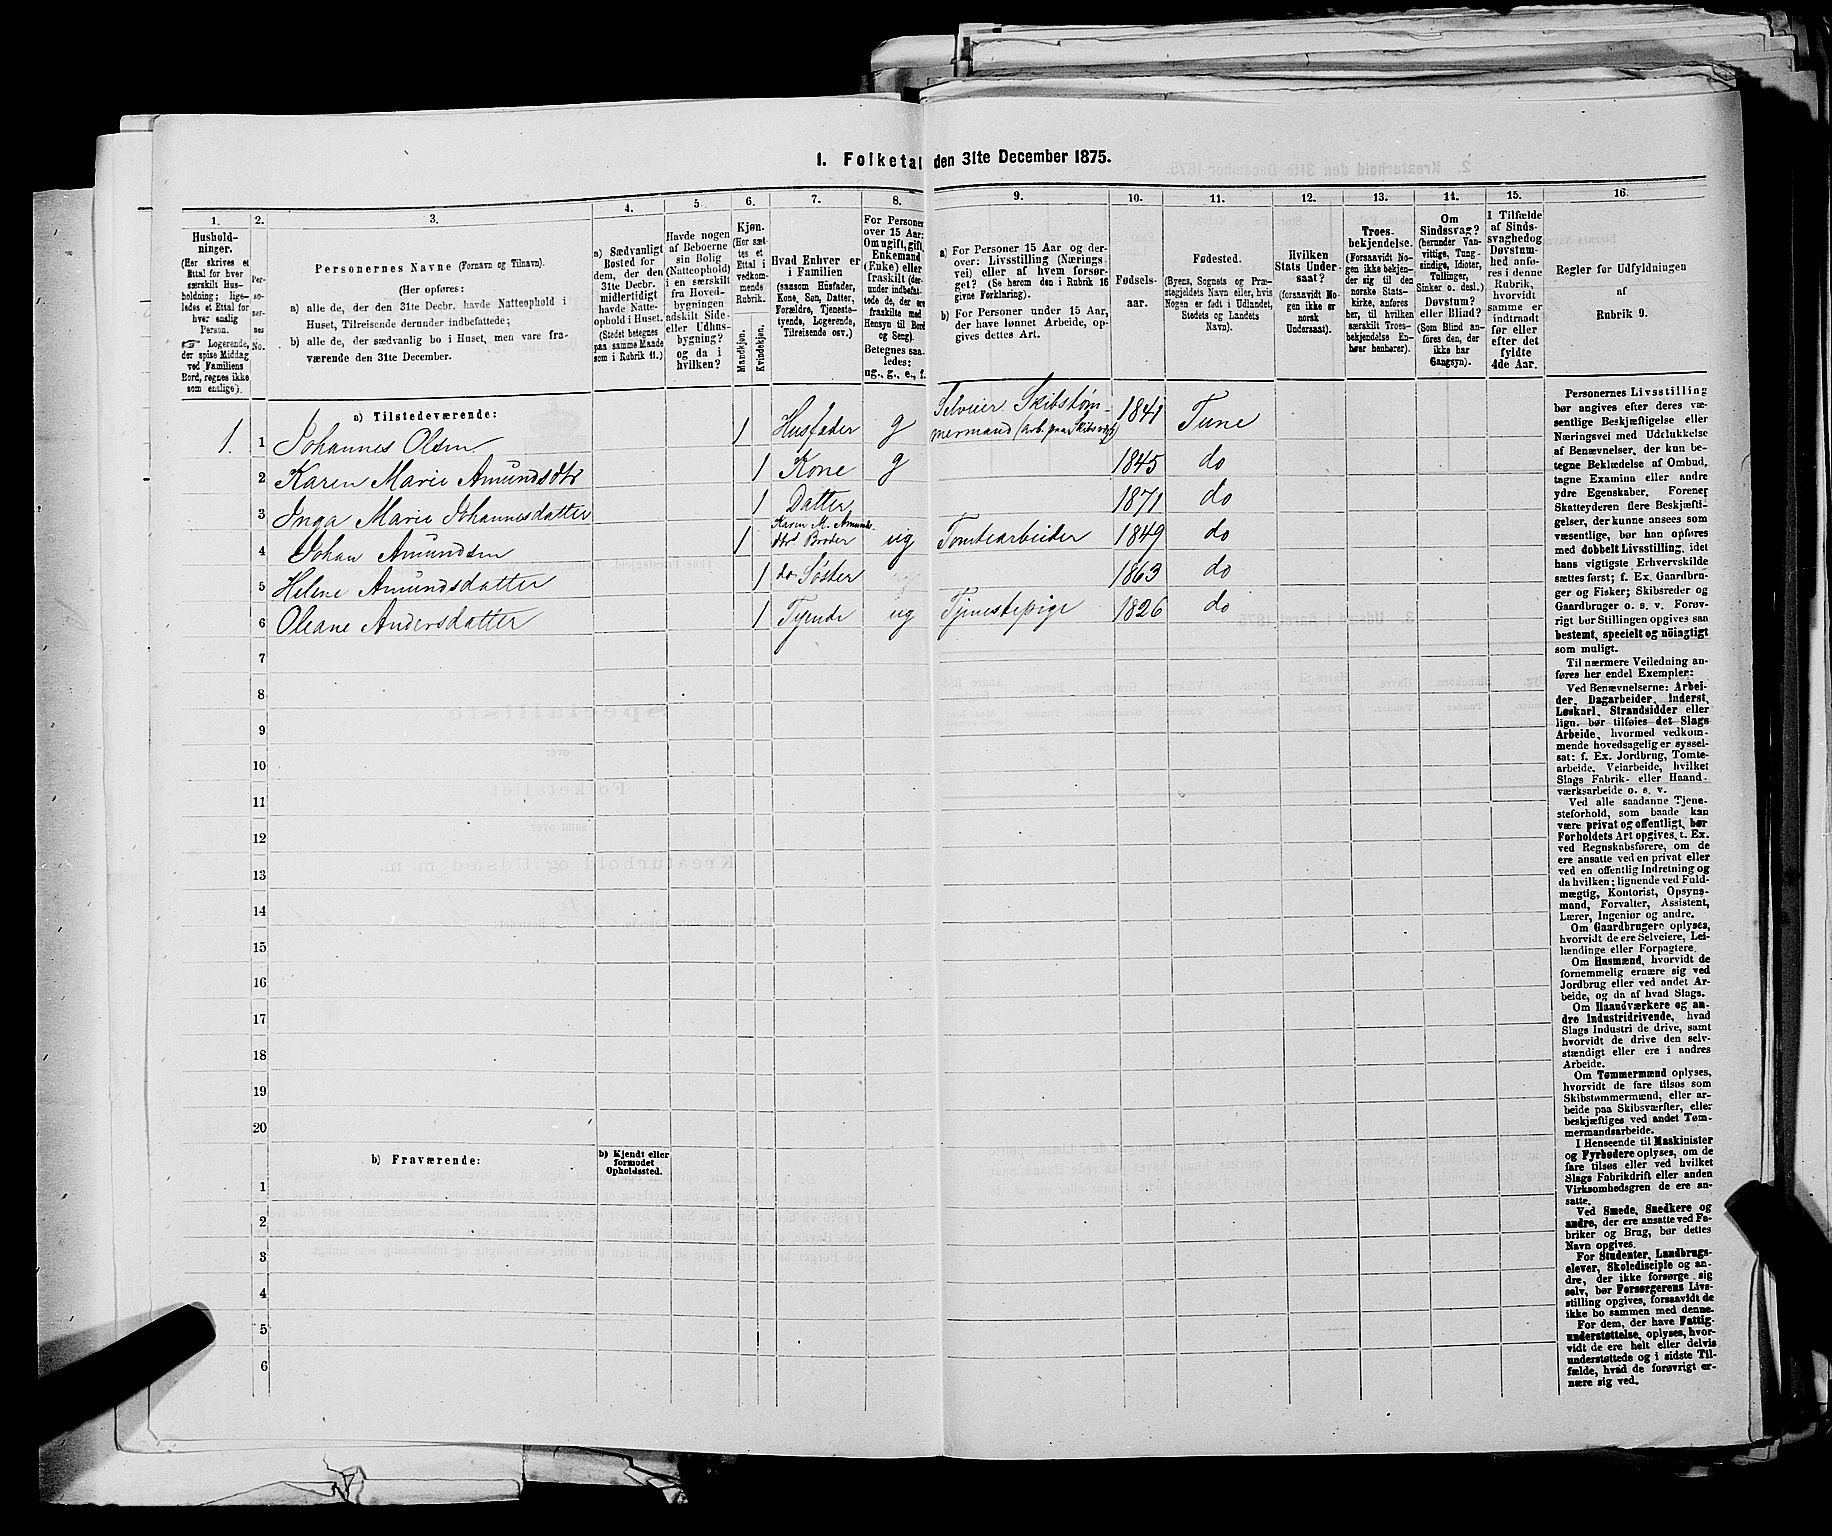 1. Folketal den 31te December 1875.
1. 2. 3. 4. 5. 6. 7. 8. 9. 10. 11. 12. 13. 14. 15. 16.
Hushold-
ninger.
(Her skrives et
Ettal for hver
særskilt Hus-
holdning; lige-
ledes et Ettal for
hver enslig
Person.
☞ Logerende,
der spise Middag
ved Familiens
Bord, regnes ikke
som enslige).
Per-
so-
ner-
nes
No.
Personernes Navne (Fornavn og Tilnavn).
(Her opføres:
a) alle de, der den 31te Decbr. havde Natteophold i
Huset, Tilreisende derunder indbefattede;
b) alle de, der sædvanlig bo i Huset, men vare fra-
værende den 31te December.
a) Sædvanligt
Bosted for
dem, der den
31te Decbr.
midlertidigt
havde Natte-
ophold i Huset.
(Stedet betegnes
paa samme Maade
som i Rubrik 11.)
Havde nogen
af Beboerne
sin Bolig
(Natteophold)
i en særskilt
fra Hoved-
bygningen
adskilt Side-
eller Udhus-
bygning?
og da i
hvilken?
Kjøn.
(Her sæt-
tes et
Ettal i
vedkom-
mende
Rubrik.
Mandkjøn.
Kvindekjøn.
Hvad Enhver er
i Familien
(saasom Husfader,
Kone, Søn, Datter,
Forældre, Tjeneste-
tyende, Logerende,
Tilreisende osv.)
For Personer
over 15 Aar:
Om ugift, gift,
Enkemand
(Enke) eller
fraskilt (der-
under indbefat-
tede de, der ere
fraskilte med
Hensyn til Bord
og Seng).
Betegnes saa-
ledes:
ug., g., e., f.
a) For Personer 15 Aar og der-
over: Livsstilling (Nærings-
vei) eller af hvem forsør-
get? (Se herom den i Rubrik 16
givne Forklaring).
b) For Personer under 15 Aar,
der have lønnet Arbeide, op-
gives dettes Art.
Fødsels-
aar.
Fødested.
(Byens, Sognets og Præ-
stegjeldets Navn eller, hvis
Nogen er født i Udlandet,
Stedets og Landets
Navn).
Hvilken
Stats Under-
saat?
(forsaavidt No-
gen ikke er
norsk
Undersaat).
Troes-
bekjendelse.
(Forsaavidt No-
gen ikke bekjen-
der sig til den
norske Stats-
kirke, anføres
her, til hvilken
særskilt Troes-
bekjendelse En-
hver henhører).
Om
Sindssvag?
(herunder Van-
vittige, Tung-
sindige, Idioter,
Tullinger,
Sinker o. desl.)
Døvstum?
eller Blind?
(Som Blind an-
føres den, der
ikke har
Gangsyn).
I Tilfælde
af Sinds-
svaghed og
Døvstum-
hed anfø-
res i denne
Rubrik,
hvorvidt
samme er
indtraadt
før eller
efter det
fyldte
4de Aar.
Regler for Udfyldningen
af
Rubrik 9.
a) Tilstedeværende:
1. 1 Johannes Olsen 1 Husfader g Selveier Skibstøm-
mermand (Arb. paa Skibsværft) 1841 Tune
2 Karen Marie Amundsdtr 1 Kone g 1845 do
3 Inga Marie Johannesdatter 1 Datter 1871 do
4 Johan Amundsen 1 Karen M. Amunds-
dtrs Broder ug Tomtearbeider 1849 do
5 Helene Amundsdatter 1 do Søster 1863 do
6 Oleane Andersdatter 1 Tyende ug Tjenestepige 1826 do
7
8
9
10
11
12
13
14
15
16
17
18
19
20
b) Fraværende:
b) Kjendt eller
formodet
Opholdssted.
1
2
3
4
5
6
Personernes Livsstilling
bør angives efter deres væ-
sentlige Beskjæftigelse eller
Næringsvei med Udelukkelse
af Benævnelser, der kun be-
tegne Beklædelse af Ombud,
tagne Examina eller andre
ydre Egenskaber. Forener
Skatteyderen flere Beskjæfti-
gelser, der kunne ansees som
væsentlige, bør han opføres
med dobbelt Livsstilling, idet
hans vigtigste Erhvervskilde
sættes først; f. Ex. Gaardbru-
ger og Fisker; Skibsreder og
Gaardbruger o. s. v. Forøv-
rigt bør Stillingen opgives saa
bestemt, specielt og nöiagtigt
som muligt.
Til nærmere Veiledning an-
føres her endel Exempler:
Ved Benævnelserne: Arbei-
der, Dagarbeider, Inderst,
Løskarl, Strandsidder eller
lign. bør tilføies det Slags
Arbeide, hvormed vedkom-
mende hovedsagelig er syssel-
sat: f. Ex. Jordbrug, Tomte-
arbeide, Veiarbeide, hvilket
Slags Fabrik- eller Haand-
værksarbeide o. s. v.
Ved alle saadanne Tjene-
steforhold, som baade kan
være privat og offentligt, bør
Forholdets Art opgives, t. Ex.
ved Regnskabsførere, om de
ere ansatte ved en privat eller
ved en offentlig Indretning og
da hvilken; lignende ved Fuld-
mægtig, Kontorist, Opsyns-
mand, Forvalter, Assistent,
Lærer, Ingeniør og andre.
Om Gaardbrugere oplyses,
hvorvidt de ere Selveiere, Lei-
lændinge eller Forpagtere.
Om Husmænd, hvorvidt de
fornemmelig ernære sig ved
Jordbrug eller ved andet Ar-
beide, og da af hvad Slags.
Om Haandværkere og an-
dre Industridrivende, hvad
Slags Industri de drive, samt
hvorvidt de drive den selv-
stændigt eller ere i andres
Arbeide.
Om Tømmermænd oplyses,
hvorvidt de fare tilsøs som
Skibstømmermænd, eller ar-
beide paa Skibsværfter, eller
beskjæftiges ved andet Tøm-
mermandsarbeide.
I Henseende til Maskinister
og Fyrbødere oplyses, om de
fare tilsøs eller ved hvilket
Slags Fabrikdrift eller anden
Virksomhedsgren de ere an-
satte.
Ved Smede, Snedkere og
andre, der ere ansatte ved Fa-
briker og Brug, bør dettes
Navn opgives.
For Studenter, Landbrugs-
elever, Skoledisciple og an-
dre, der ikke forsørge sig
selv, bør Forsørgerens Livs-
stilling opgives, forsaavidt de
ikke bo sammen med denne.
For dem, der have Fattig-
understøttelse, oplyses, hvor-
vidt de ere helt eller delvis
understøttede og i sidste Til-
fælde, hvad de forøvrigt er-
nære sig ved.